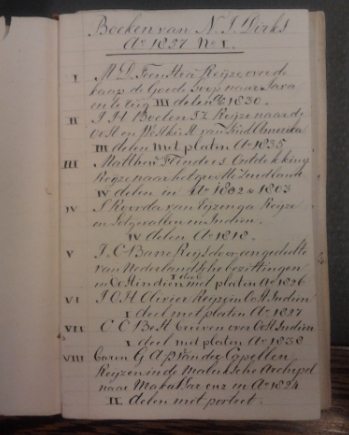 Boeken van N. J. Dirks
Ao 1837 No 1.
I M. D. Teenstra Reyze over de
kaap de Goede Hoop naar Java
en terug III delen Ao 1830.
II J. H. Boelen Jz Reyze naar de
Oost en Westkust van Zuid Amerika
III delen met platen Ao 1835
III Matthew Flinders Ontdekking
Reyze naar het groote Zuidland
IV delen in Ao 1802 a 1803
IV S. Roorda van Eysinga Reyze
en Lotgevallen in Indien.
IV delen Ao 1818.
V Reys door
van Nederlandsche bezittingen
in O Indien met platen Ao 1826
VI J. C. H. Olivier Reyze in Oost Indien
I deel met platen Ao 1837
VII Brieven over Oost Indien
I deel met platen Ao 1838
VIII Baron G. A. P. van der Capellen
Reyze in de Moluksche Archipel
naar Makasser enz in Ao 1824
II delen met portret.